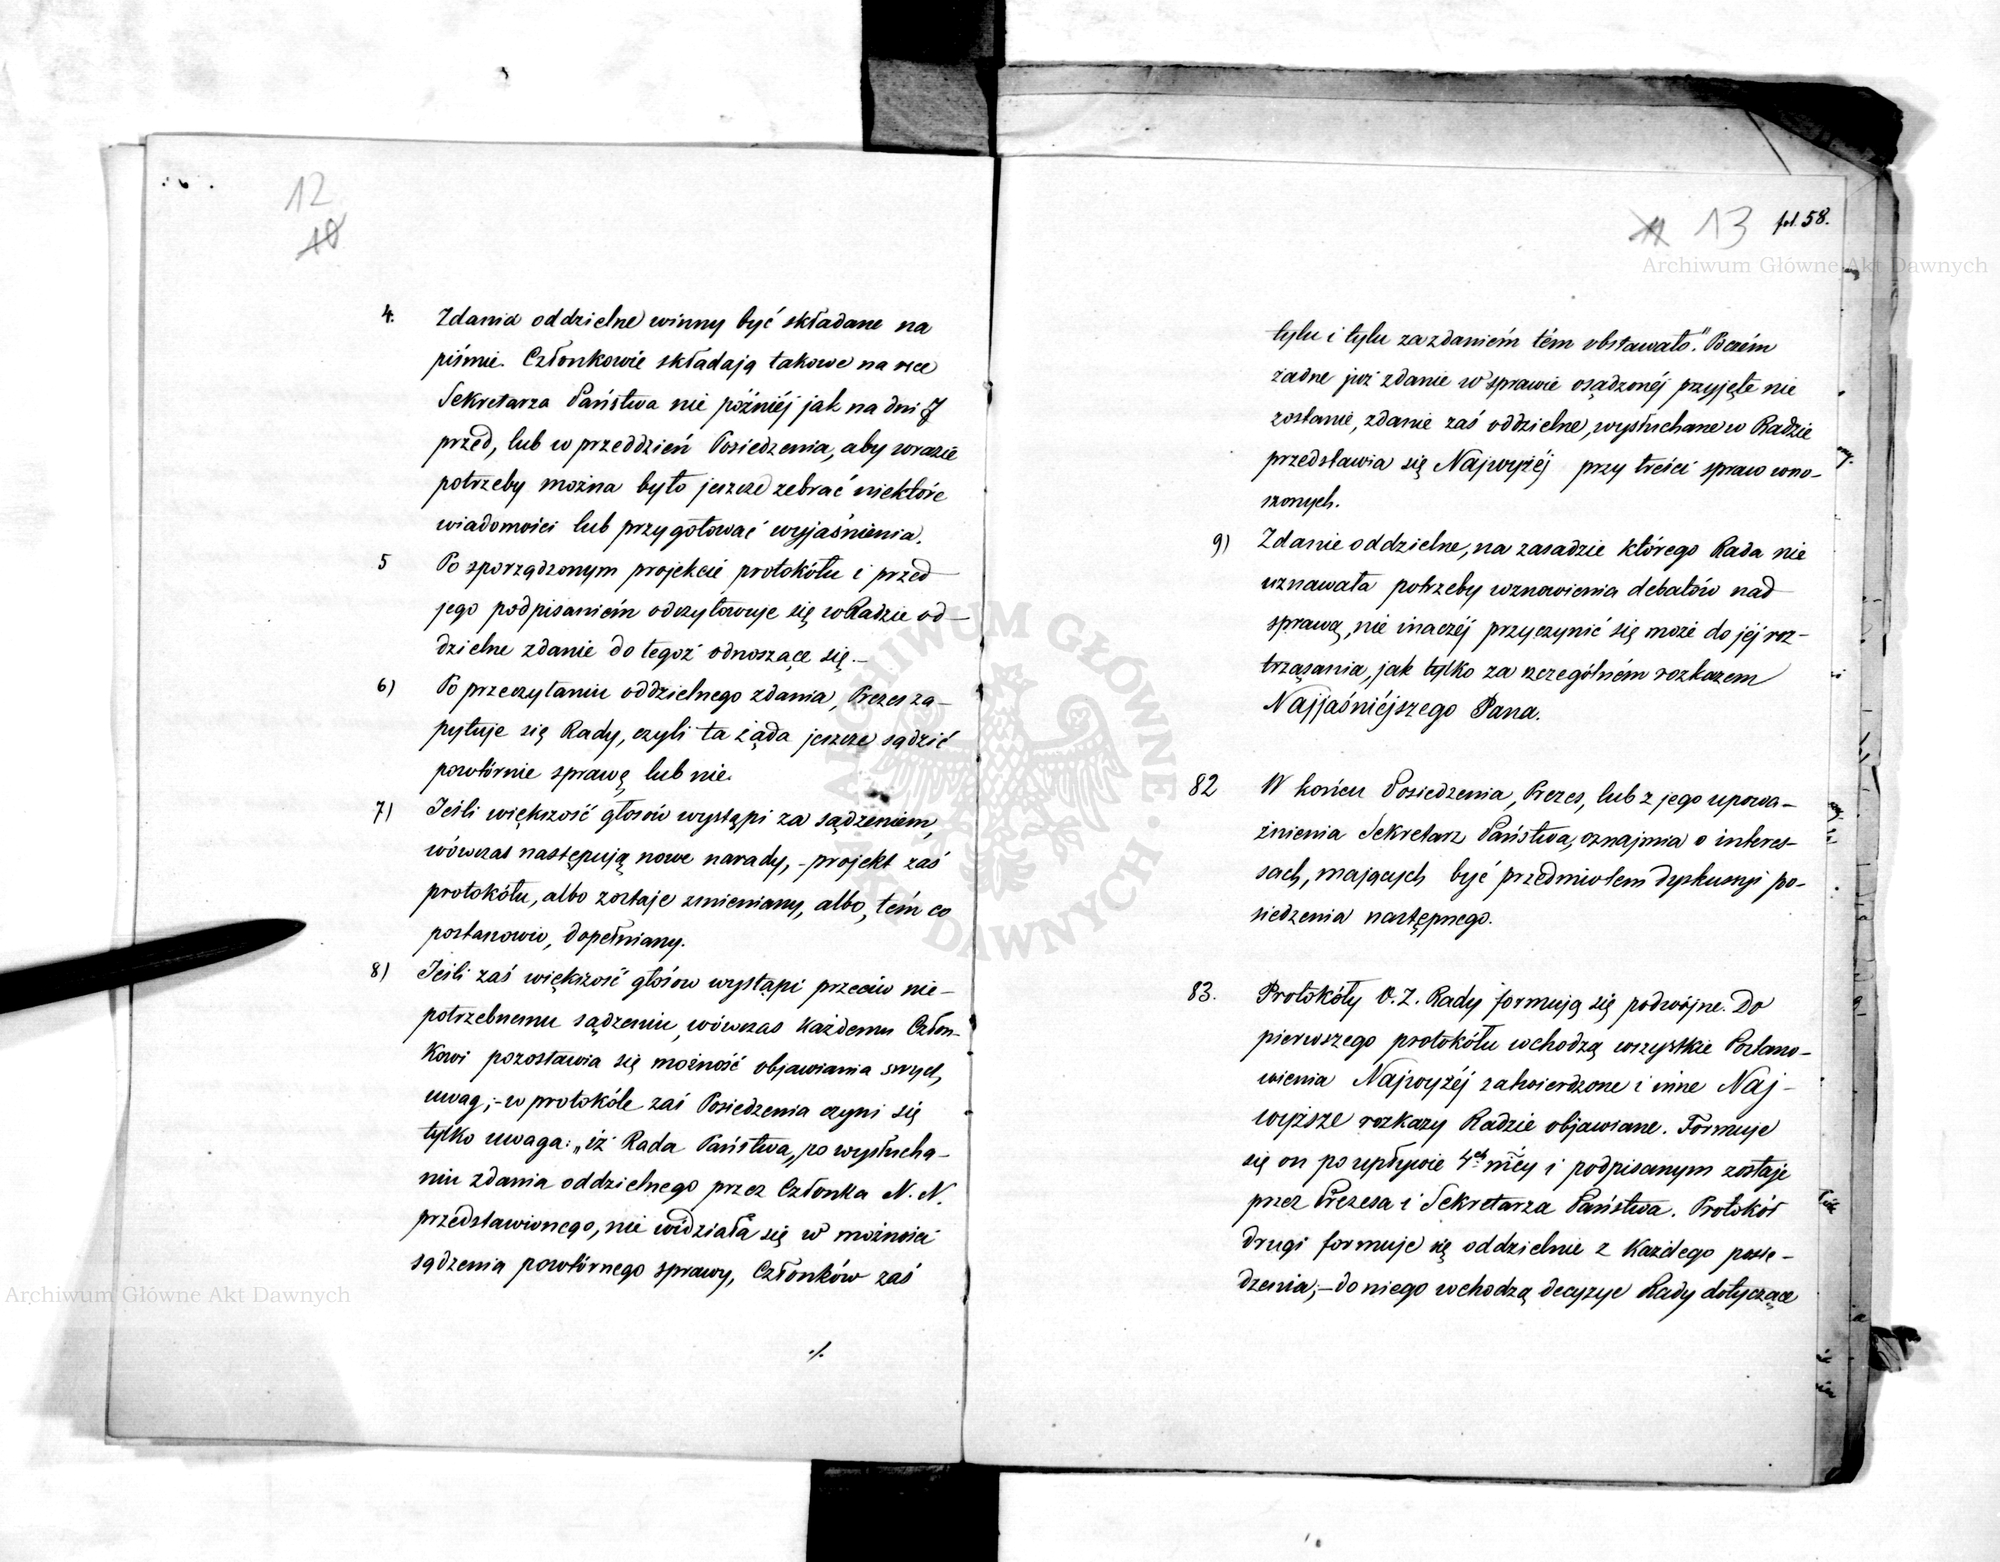 12
10
4. Zdania oddzielne winny być składane na
piśmie. Członkowie składają takowe na ręce
Sekretarza Państwa nie później jak na dni
przed, lub w przeddzień Posiedzenia, aby w razie
potrzeby można było jeszcze zebrać niektóre
wiadomości lub przygotować wyjaśnienia.
5 Po sporządzonym projekcie protokółu i przed
jego podpisaniém odczytowuje się w Radzie od-
dzielne zdanie do tegoż odnoszące się.-
6) Po przeczytaniu oddzielnego zdania, Prezes za-
pytuje się Rady, czyli ta żąda jeszcze sądzić
powtórnie sprawę, lub nie.
7) Jeśli większość głosów wystąpi za sądzeniem,
wówczas następują nowe narady, - projekt zaś
protokółu, albo zostaje zmieniany, albo, tém co
postanowio, dopełniany.
8) Jeśli zaś większość głosów wystąpi przeciw nie-
potrzebnemu sądzeniu, wówczas każdemu Człon-
kowi pozostawia się możność objawiania swych
uwag; - w protokóle zaś Posiedzenia czyni się
tylko uwaga: „iż Rada Państwa, po wysłucha-
niu zdania oddzielnego przez Członka N. N.
przedstawionego, nie widziała się w możności
sądzenia powtórnego sprawy, Członków zaś
./.
11 13 fol. 58.
tylu i tylu za zdaniém tém obstawało." Poczém
żadne już zdanie w sprawie osądzonéj przyjęte nie
zostanie, zdanie zaś oddzielne, wysłuchane w Radzie
przedstawia się Najwyżéj przy treści spraw wno-
szonych.
9) Zdanie oddzielne, na zasadzie którego Rada nie
uznawała potrzeby wznowienia debatów nad
sprawą, nie inaczéj przyczynić się może do jéj roz-
trząsania, jak tylko za szczególném rozkazem
Najjaśniéjszego Pana.
82 W końcu Posiedzenia, Prezes, lub z jego upowa-
żnienia Sekretarz Państwa, oznajmia o interes-
sach, mających być przedmiotem dyskussji po-
siedzenia następnego.
83. Protokóły O. Z. Rady formują się podwójne. Do
pierwszego protokółu wchodzą wszystkie Postano-
wienia Najwyżéj zatwierdzone i inne Naj-
wyższe rozkazy Radzie objawiane. Formuje
się on po upływie 4ch mcy i podpisanym zostaje
przez Prezesa i Sekretarza Państwa. Protokół
drugi formuje się oddzielnie z każdego posie-
dzenia; - do niego wchodzą decyzye Rady dotyczące
Archiwum Główne Akt Dawnych
Archiwum Główne Akt Dawnych
ARCHIWUM GŁÓWNE AKT DAWNYCH